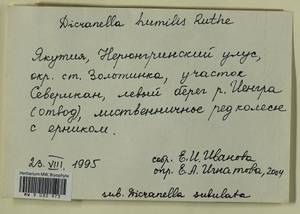 Dicranella humilis Ruthe
Якутия, Нерюнгринский улус,
окр. ст. Золотинка, участок
Северикан, левый берег р. Иенгра
(отвод), лиственничное редколесье
с ерником.
23. VIII. 1995
собр. Е.И. Иванова
опр. Е.А. Игнатова, 2004
sub. Dicranella subulata
Herbarium MW, Bryophyta